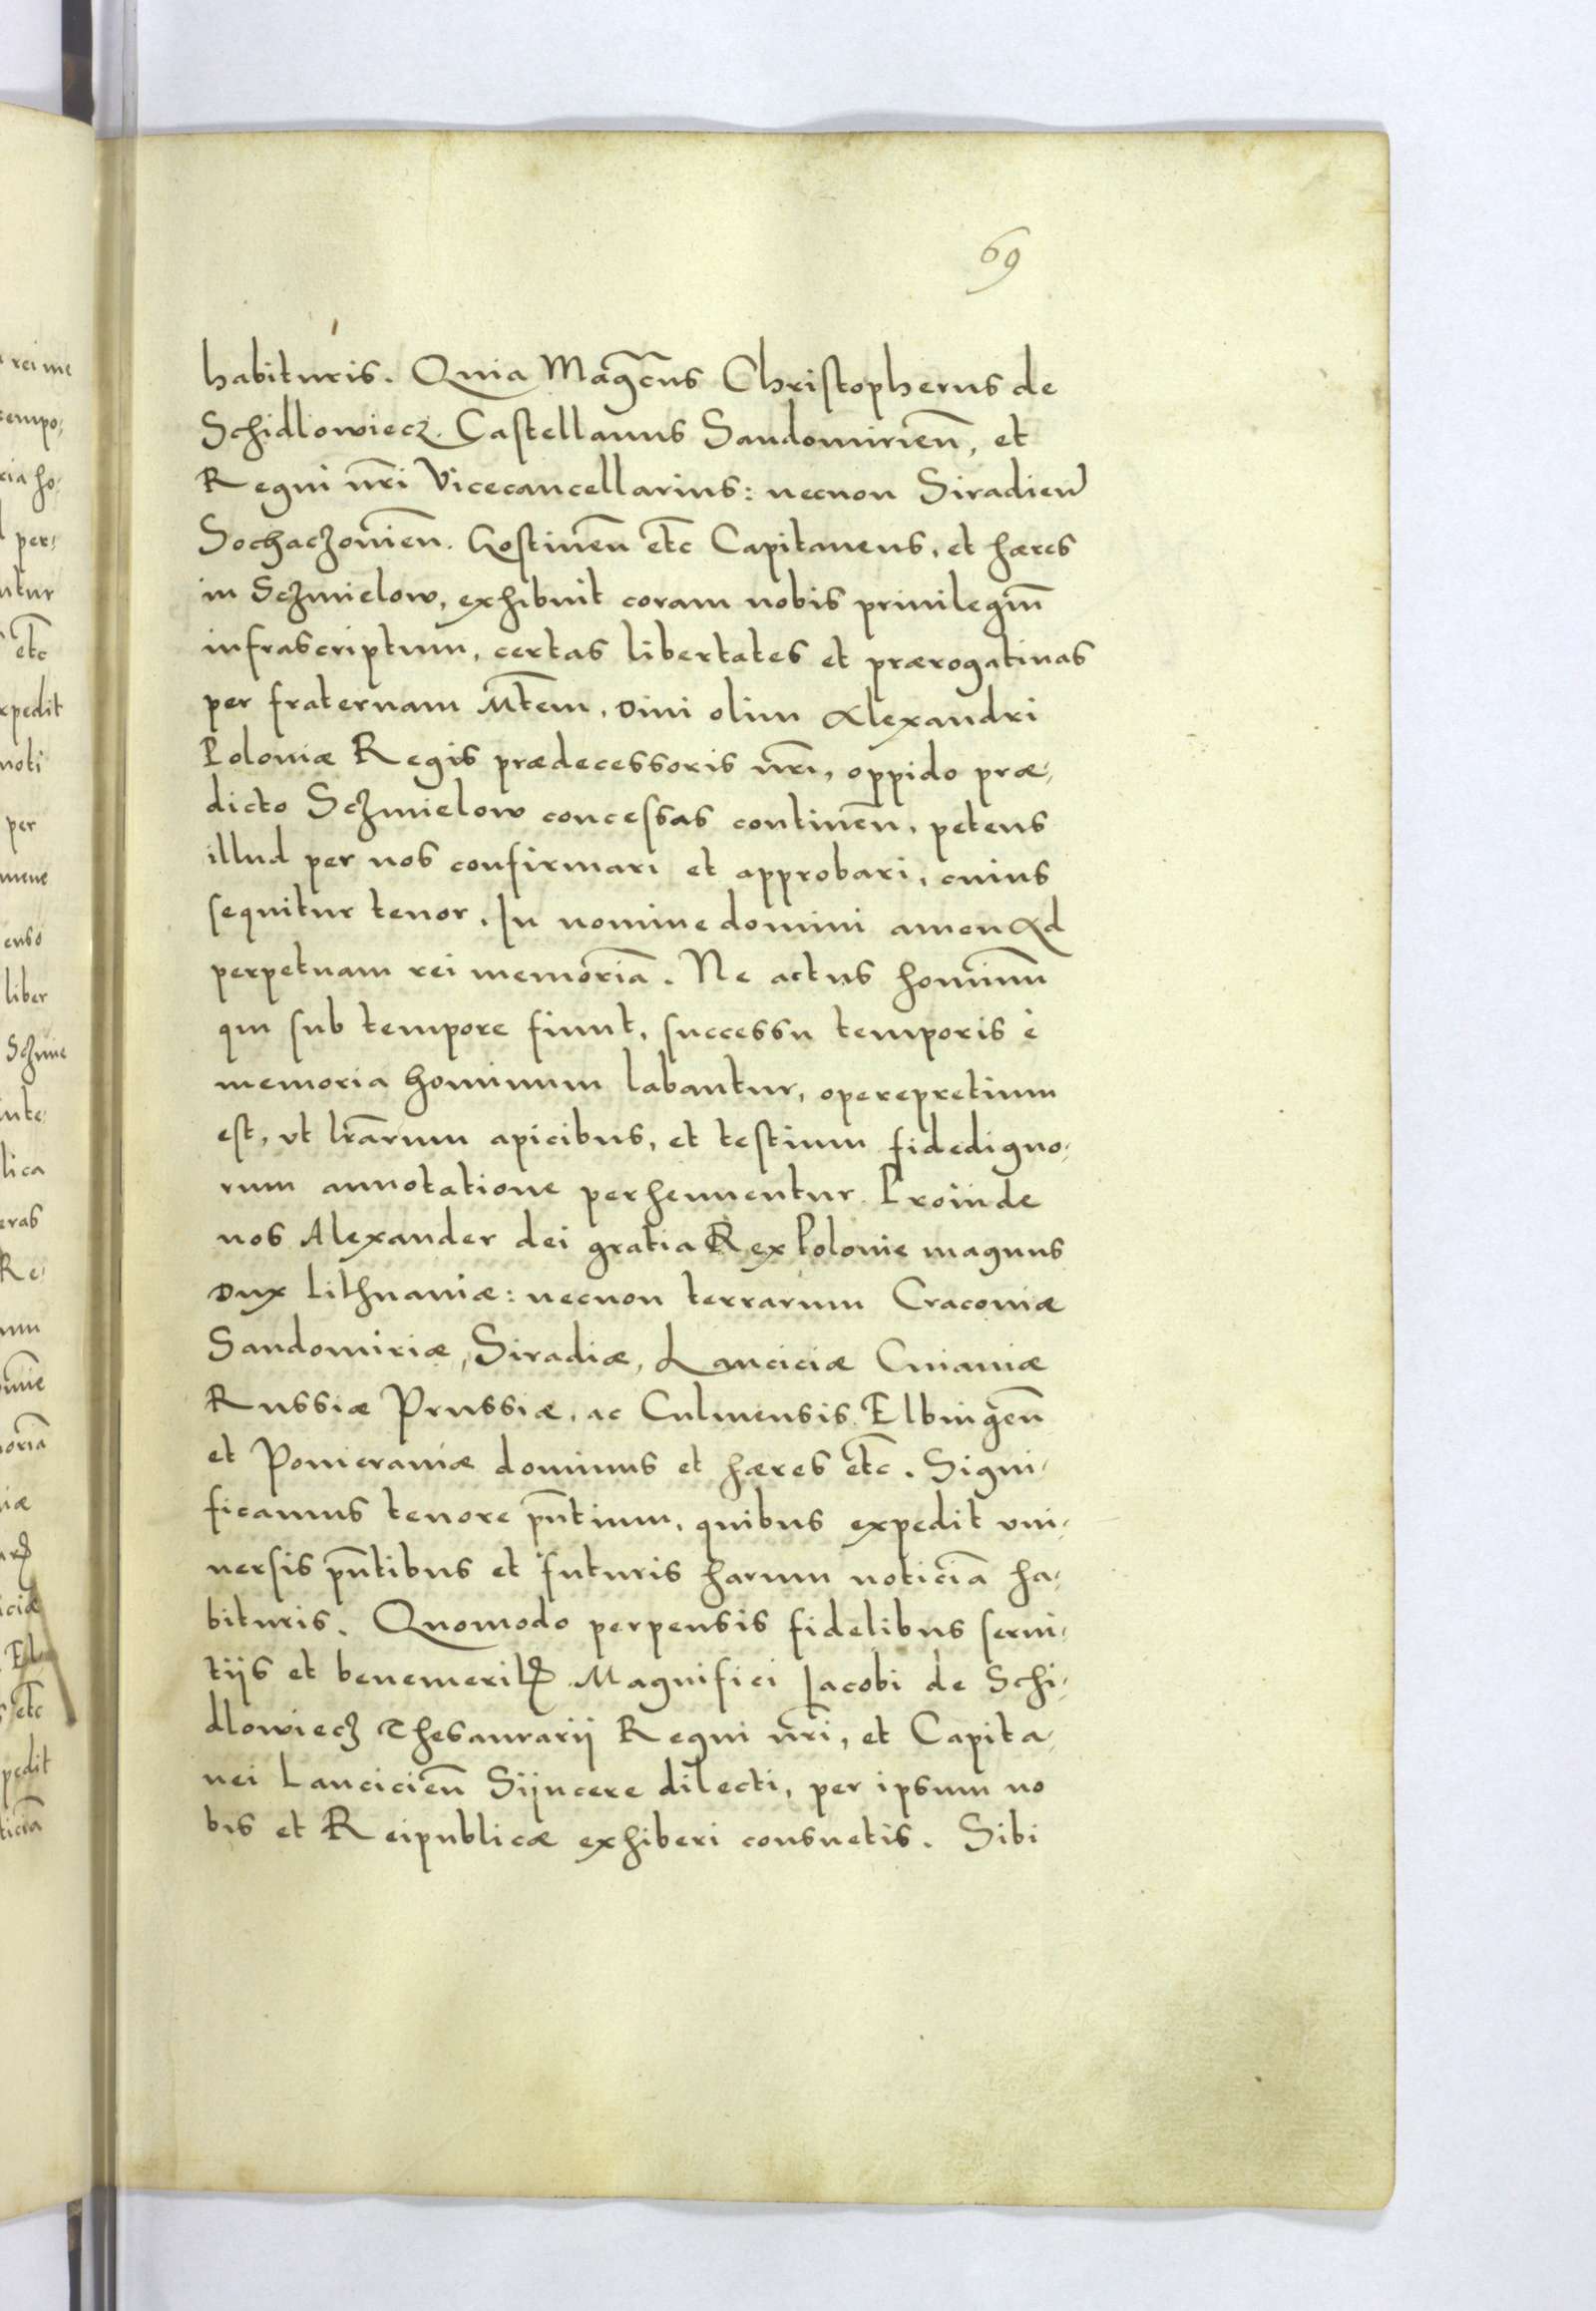 69
habituris. Quia Mag̃cus Christopherus de
Schidlowiecz. Castellanus Sandomirien̄, et
Regni nr̄i Vicecancellarius: necnon Siradien̄
Sochaczouien̄. Gostinen̄ et̄c Capitaneus, et hæres
in Sczmielow, exhibuit coram nobis priuilegiū
infrascriptum, certas libertates et prærogatiuas
per fraternam Mt̄em, Diui olim Alexandri
Poloniæ Regis prædecessoris nr̄i, oppido præ-
dicto Sczmielow concessas continen̄, petens
illud per nos confirmari et approbari, cuius
sequitur tenor. In nomine domini amen Ad
perpetuam rei memoriā. Ne actus hominū
qui sub tempore fiunt, successu temporis è
memoria hominum labantur, operepretium
est, vt lr̄arum apicibus, et testium fidedigno-
rum annotatione perhennentur. Proinde
nos Alexander dei gratia Rex Polonie magnus
Dux Lithuaniæ: necnon terrarum Cracouiæ
Sandomiriæ, Siradiæ, Lanciciæ Cuiauiæ
Russiæ Prussiæ, ac Culmensis Elbingen̄
et Pomeraniæ dominus et hæres et̄c. Signi-
ficamus tenore pn̄tium, quibus expedit vni-
uersis pn̄tibus et futuris harum noticiā ha-
bituris. Quomodo perpensis fidelibus serui-
tijs et benemeritꝭ Magnifici Jacobi de Schi-
dlowiecz Thesaurarij Regni nr̄i, et Capita-
nei Lancicien̄ Sijncere dilecti, per ipsum no
bis et Reipublicæ exhiberi consuetis. Sibi